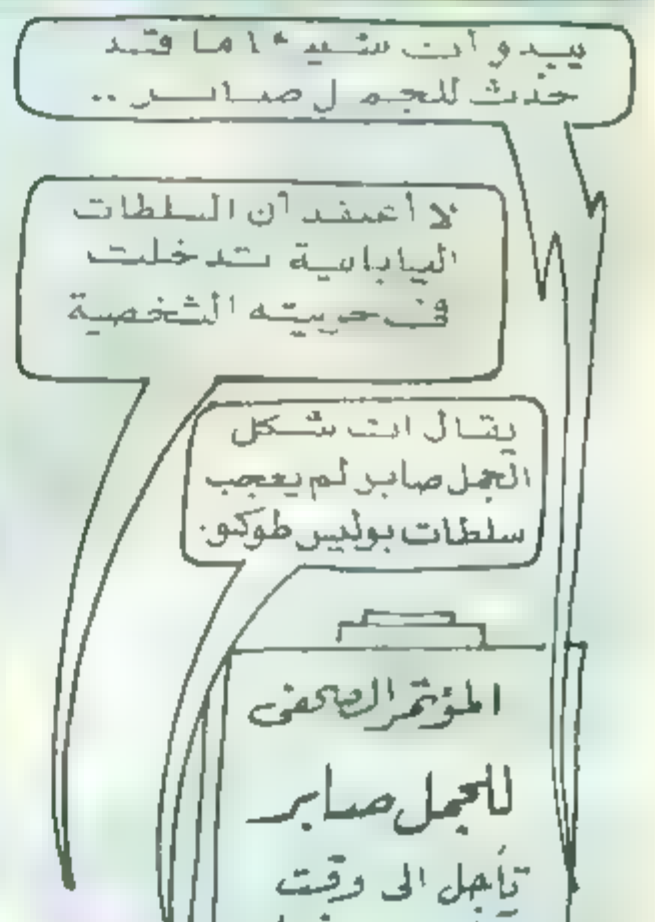 يبدو أن شيء ا ما قد
حدث للجمل صابر ..
لا أعتقد أن السلطات
اليابانية تدخلت
في حريته الشخصية
يقال ان شكل
الجمل صابر لم يعجب
سلطات بوليس طوكيو.
المؤتمر الصحفى
للجمل صابر
تأجل الى وقت